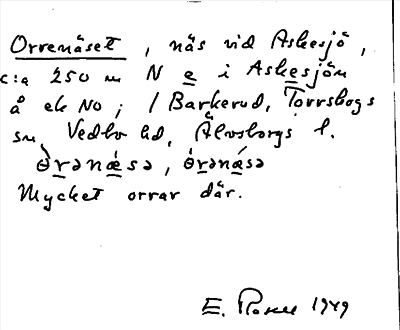 Orrenäset, näs vid Askesjö,
c:a 250 m N e i Askesjön
å ek No; i Barkerud, Torrskogs
sn, Vedbo hd, Älvsborgs l.
òrənæ̀sə, ór̲ənæ̲sə
Mycket orrar där.
E. Rosell 1949